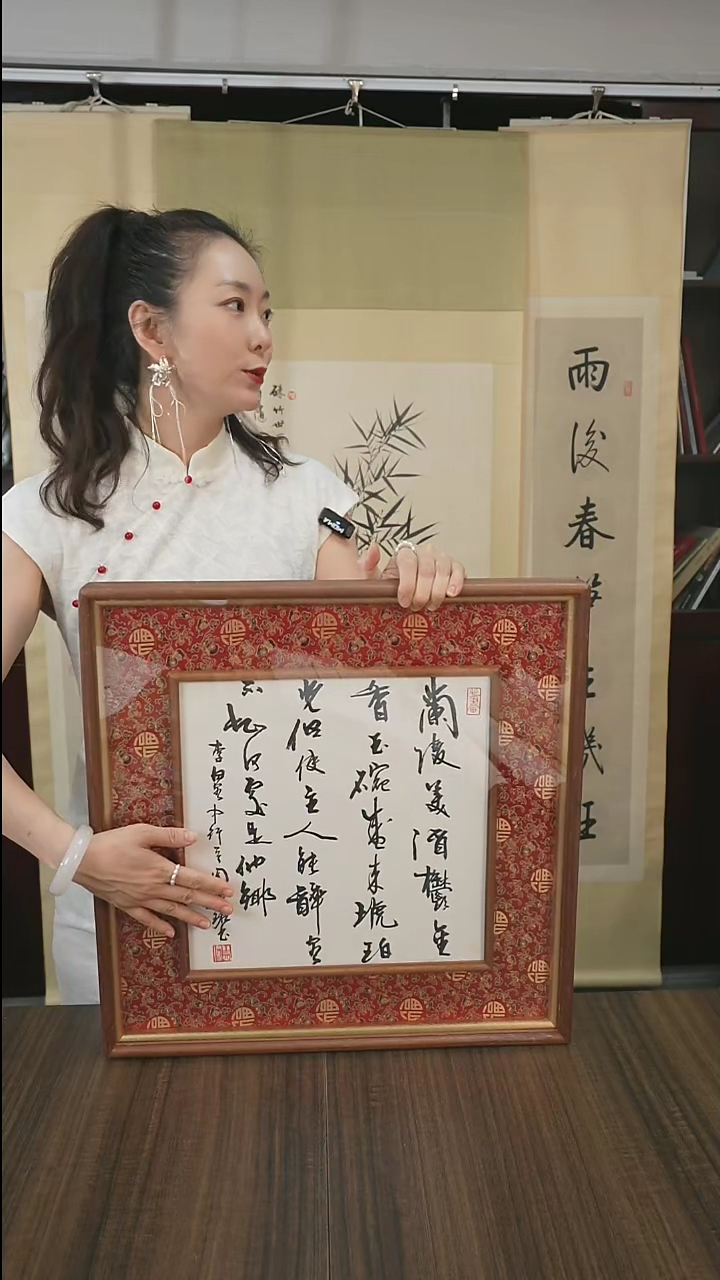 蘭陵美酒鬱金
香玉碗盛来琥珀
光但使主人能醉客
不知何處是他鄉
李白客中行
雨後春